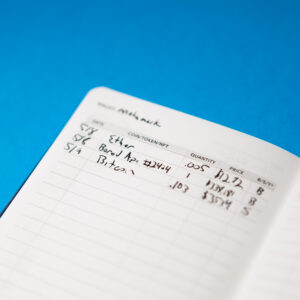 WALLET: Metamask
DATE COIN/TOKEN/NFT QUANTITY PRICE B/S/T
5/8 Ether .005 $12.72 B
Bored Ape #2424 1 B
Bitcoin .103 $3514 S